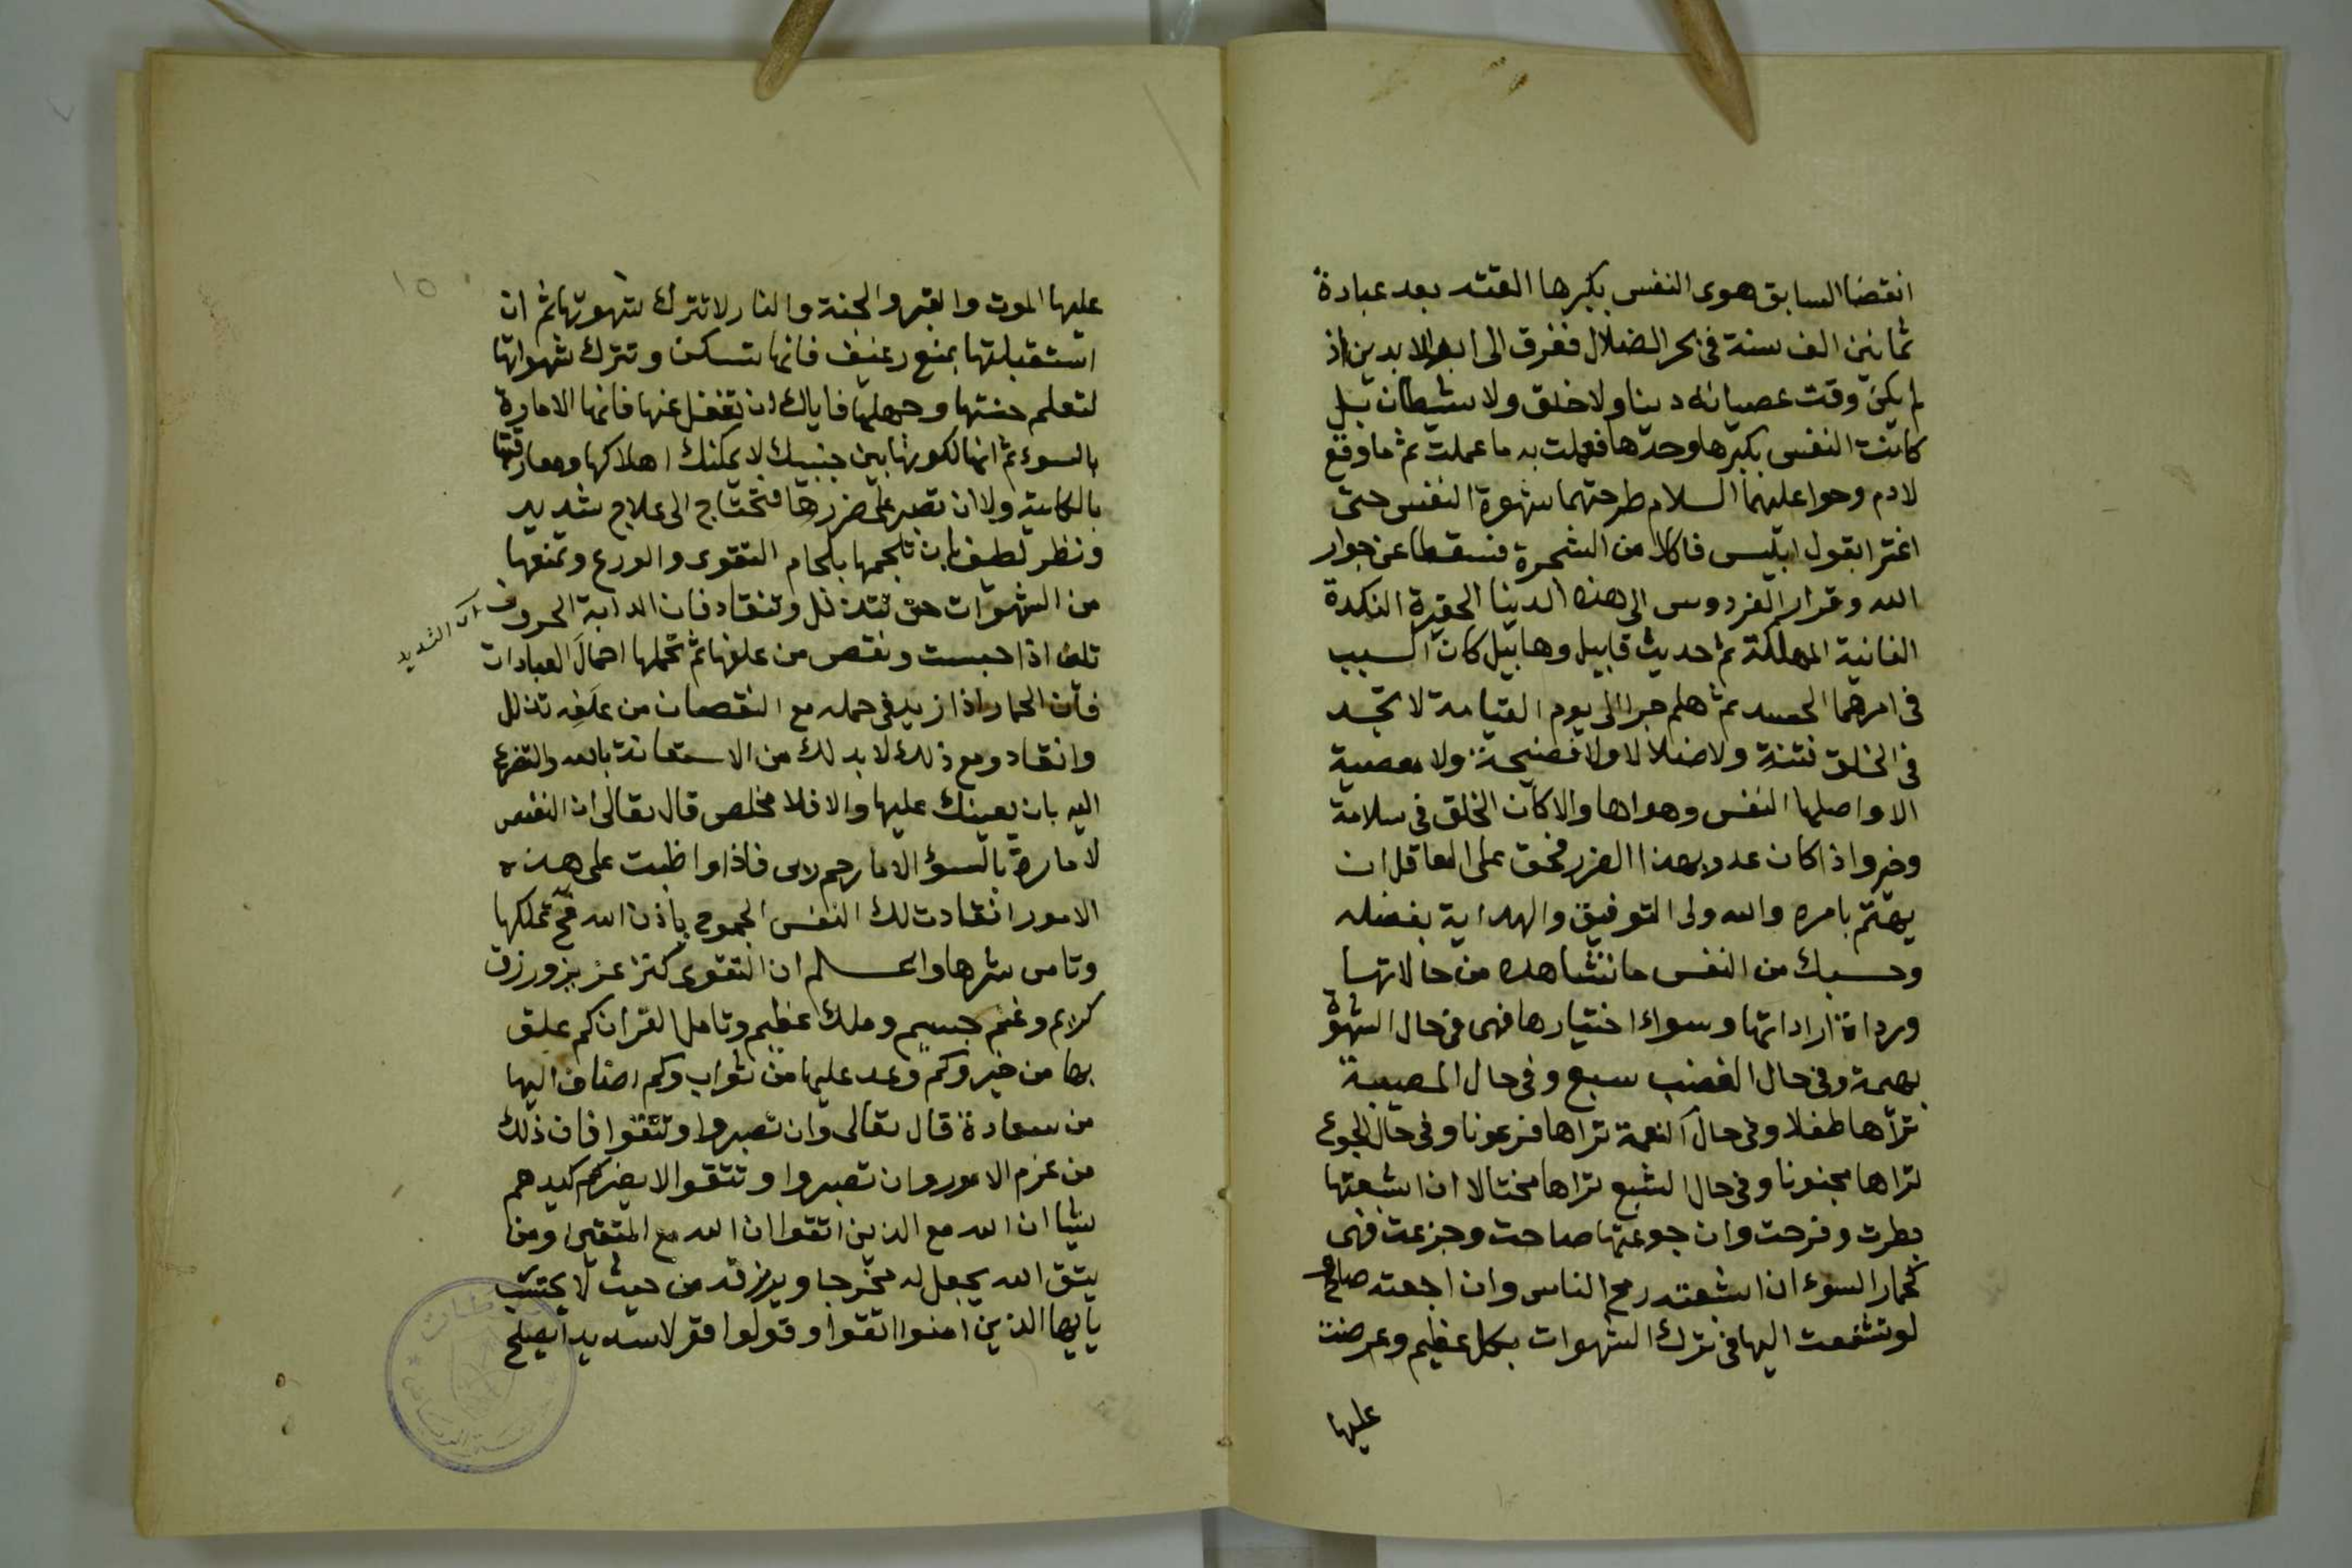 انقضا السابق هوى النفس بكبرها القته بعد عبادة
ثمانين الف سنة فى بحر الضلال فغرق الى ابد الابدين اذ
لم يكن وقت عصيانه دينا ولا خلق ولا شيطان بل
كانت النفس بكبرها وحدها فعملت به ما عملت ثم ما وقع
لادم وحوا عليهما السلام طرحتهما شهوة النفس حتى
اغترا بقول ابليس فاكلا من الشجرة فسقطا عن جوار
الله وقرار الفردوس الى هذه الدينا الحقيرة النكدة
الفانية المهلكة ثم حديث قابيل وهابيل كان السبب
فى امرهما الحسد ثم هلم جرا الى يوم القيامة لا تجد
فى الخلق فتنة ولا ضلالا ولا فضيحة ولا معصية
الا واصلها النفس وهواها والا كان الخلق فى سلامة
وخير واذا كان عدد بهذا الضرر فحق على العاقل ان
يهتم بامره والله ولى التوفيق والهداية بفضله
وحسبك من النفس ما نشاهده من حالاتها
ورداة اراداتها وسواء اختيارها فهى فى حال الشهوة
بهيمة وفى حال الغضب سبع وفى حال المصيبة
تراها طفلا وفى حال النعمة تراها فرعونا وفى حال الجوع
تراها مجنونا وفى حال الشبع تراها مختالا ان اشبعتها
بطرت وفرحت وان جوعتها صاحت وجزعت فهى
كحمار السوء ان اشبعته رمح الناس وان اجعته صاح و
لو تشفعت اليها فى ترك الشهوات بكل عظيم وعرضت
عليها
١٥
عليها الموت والقبر والجنة والنار لا تترك شهوتها ثم ان
استقبلتها بمنع رغيف فانها تسكن وتترك شهواتها
لتعلم خستها وجهلها فاياك ان تغفل عنها فانها الامارة
بالسوء ثم انها لكونها بين جنبيك لا يمكنك اهلاكها ومفارقتها
بالكلية ولا ان تصبر على ضررها فتحتاج الى علاج شديد
ونظر لطيف بان تلجمها بلجام التقوى والورع وتمنعها
من الشهوات حتى تتذلل وتنقاد فان الدابة الحرون
اى الشديد
تلين اذا حبست ونقص من علفها ثم تحملها احمال العبادات
فان الحمار اذا زيد فى حمله مع النقصان من علفه تذلل
وانقاد ومع ذلك لا بد لك من الاستعانة بالله والتضرع
اليه بان يعينك عليها والا فلا مخلص قال تعالى ان النفس
لامارة بالسوء الا ما رحم ربى فاذا واظبت على هذه
الامور انقادت لك النفس الجموح باذن الله فح تملكها
وتامن شرها واعلم ان التقوى كنز عزيز ورزق
كريم وغنم جسيم وملك عظيم وتامل القران كم علق
بها من خير وكم وعد عليها من ثواب وكم اضاف اليها
من سعادة قال تعالى وان تصبروا وتتقوا فان ذلك
من عزم الامور وان تصبروا وتتقوا لا يضركم كيدهم
شيئا ان الله مع الذين اتقوا ان الله مع المتقين ومن
يتق الله يجعل له مخرجا ويرزقه من حيث لا يحتسب
يا يها الذين امنوا اتقوا وقولوا قولا سديدا يصلح